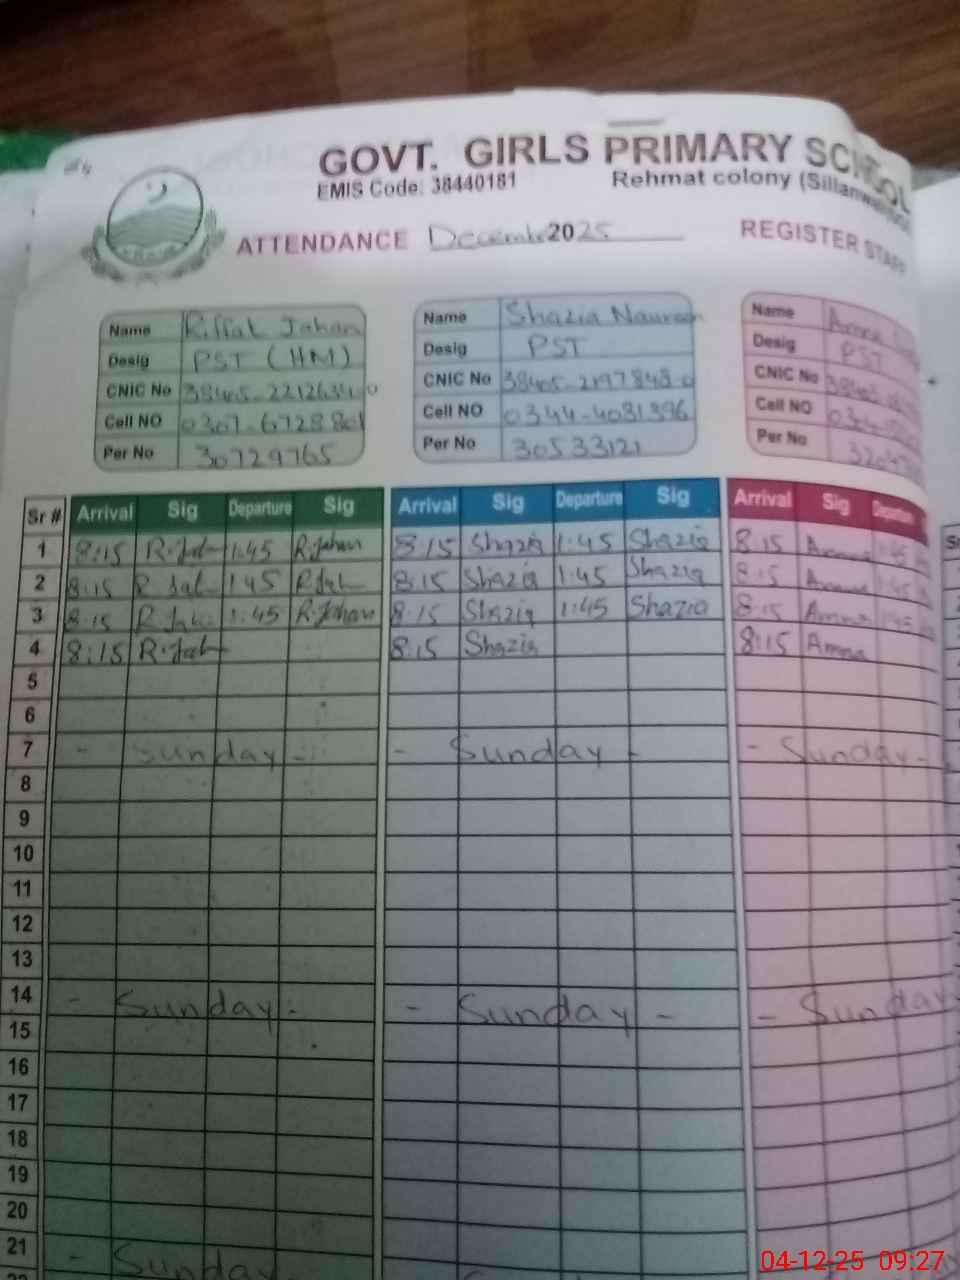 GOVT. GIRLS PRIMARY SCHOOL
EMIS Code: 38440181 Rehmat colony (Sillanwali
ATTENDANCE December 2025 REGISTER STAFF
Name Riffat Jahan
Desig PST (HM)
CNIC No
Cell NO
Per No 30729765
Name Shazia Naureen
Desig PST
CNIC No 38405-2197848-0
Cell NO 0344-4081396
Per No 30533121
Name Amna
Desig PST
CNIC No
Cell NO
Per No
Sr # Arrival Sig Departure Sig Arrival Sig Departure Sig Arrival Sig Departure
1 8:15 R.Jah 1:45 R.Jahan 8:15 Shazia 1:45 Shazia 8:15 Amna 1:45
2 8:15 R Jah 1:45 R Jah 8:15 Shazia 1:45 Shazia 8:15 Amna 1:45
3 8:15 R.Jah 1:45 R.Jahan 8:15 Shazia 1:45 Shazia 8:15 Amna 1:45
4 8:15 R.Jah 8:15 Shazia 8:15 Amna
5
6
7 - Sunday - - Sunday - - Sunday -
8
9
10
11
12
13
14 - Sunday - - Sunday - - Sunday
15
16
17
18
19
20
21 - Sunday
04-12-25 09:27